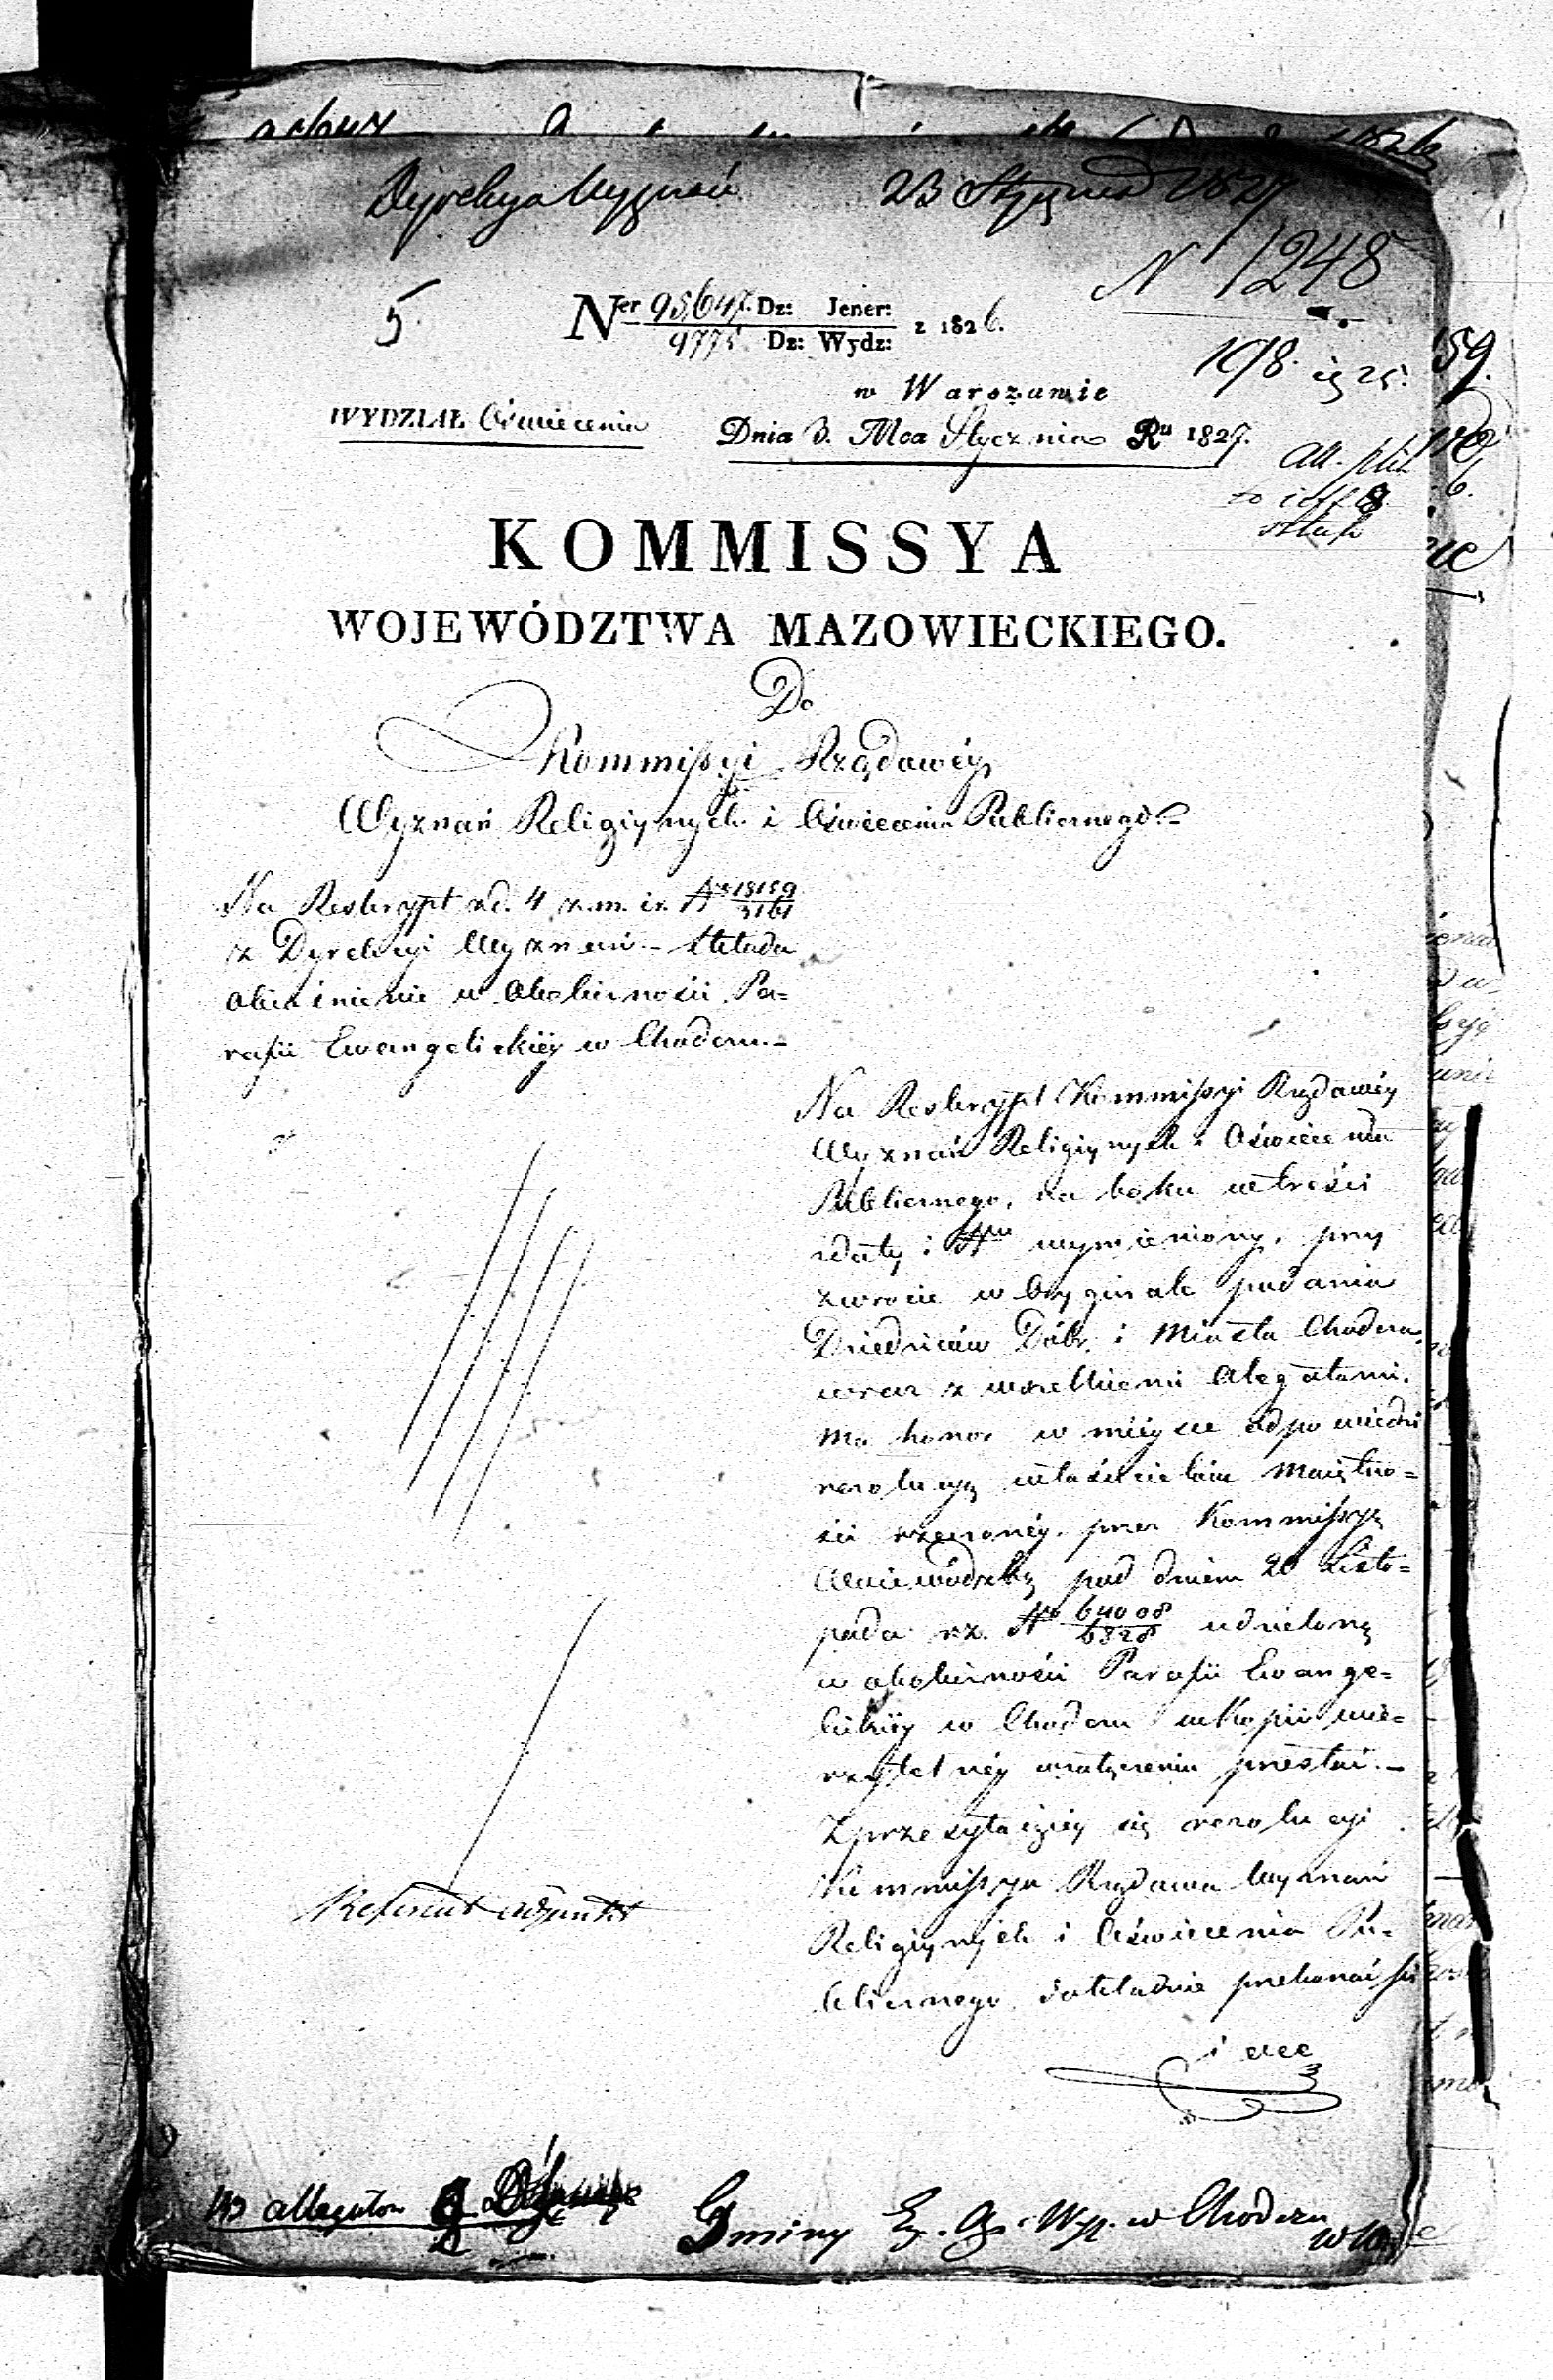 Dyrekcya Wyznań 23 Stycznia 1827
N 1248
5.
Ner 95,647. Dz: Jener: z 1826.
9775 Dz: Wydz:
w Warszawie
WYDZIAŁ Oświecenia
Dnia 3. Mca Stycznia Ru 1827.
KOMMISSYA
WOJEWÓDZTWA MAZOWIECKIEGO.
Do
Kommissyi Rządowéy
Wyznań Religiynych i Oświecenia Publicznego.
Na Reskrypt z d. 4 z. m. i r. No 18159
3161
z Dyrekcyi Wyznań – składa
obiaśnienie w okoliczności Pa=
rafii Ewangelickiéy w Chodczu. –
Na Reskrypt Kommissyi Rządowéy
Wyznań Religiynych i Oświecenia
Publicznego, na boku w treści
daty i Nru wymieniony, przy
zwrocie w Oryginale podania
Dziedziców Dóbr i Miasta Chodcza,
wraz z wszelkiemi Allegatami,
ma honor w miéysce odpowiedzi
rezolucyą właścicielom Maiętno=
ści rzeczonéy, przez Kommissyą
Woiewódzką pod dniem 20 Listo=
pada rz. No 64008 udzieloną
6328
w okoliczności Parafii Ewange=
lickiéy w Chodczu w kopii wie=
rzytelnéy w załączeniu przesłać. –
Z przesyłaiącéy się rezolucyi
Kommissya Rządowa Wyznań
Religiynych i Oświecenia Pu=
blicznego dokładnie przekonać się
Referent
allegatów
Gminy Ew. Au. Wyz. w Chodczu